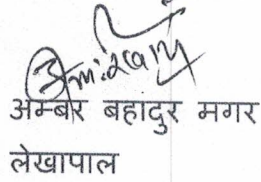 अम्बर बहादुर मगर
लेखापाल